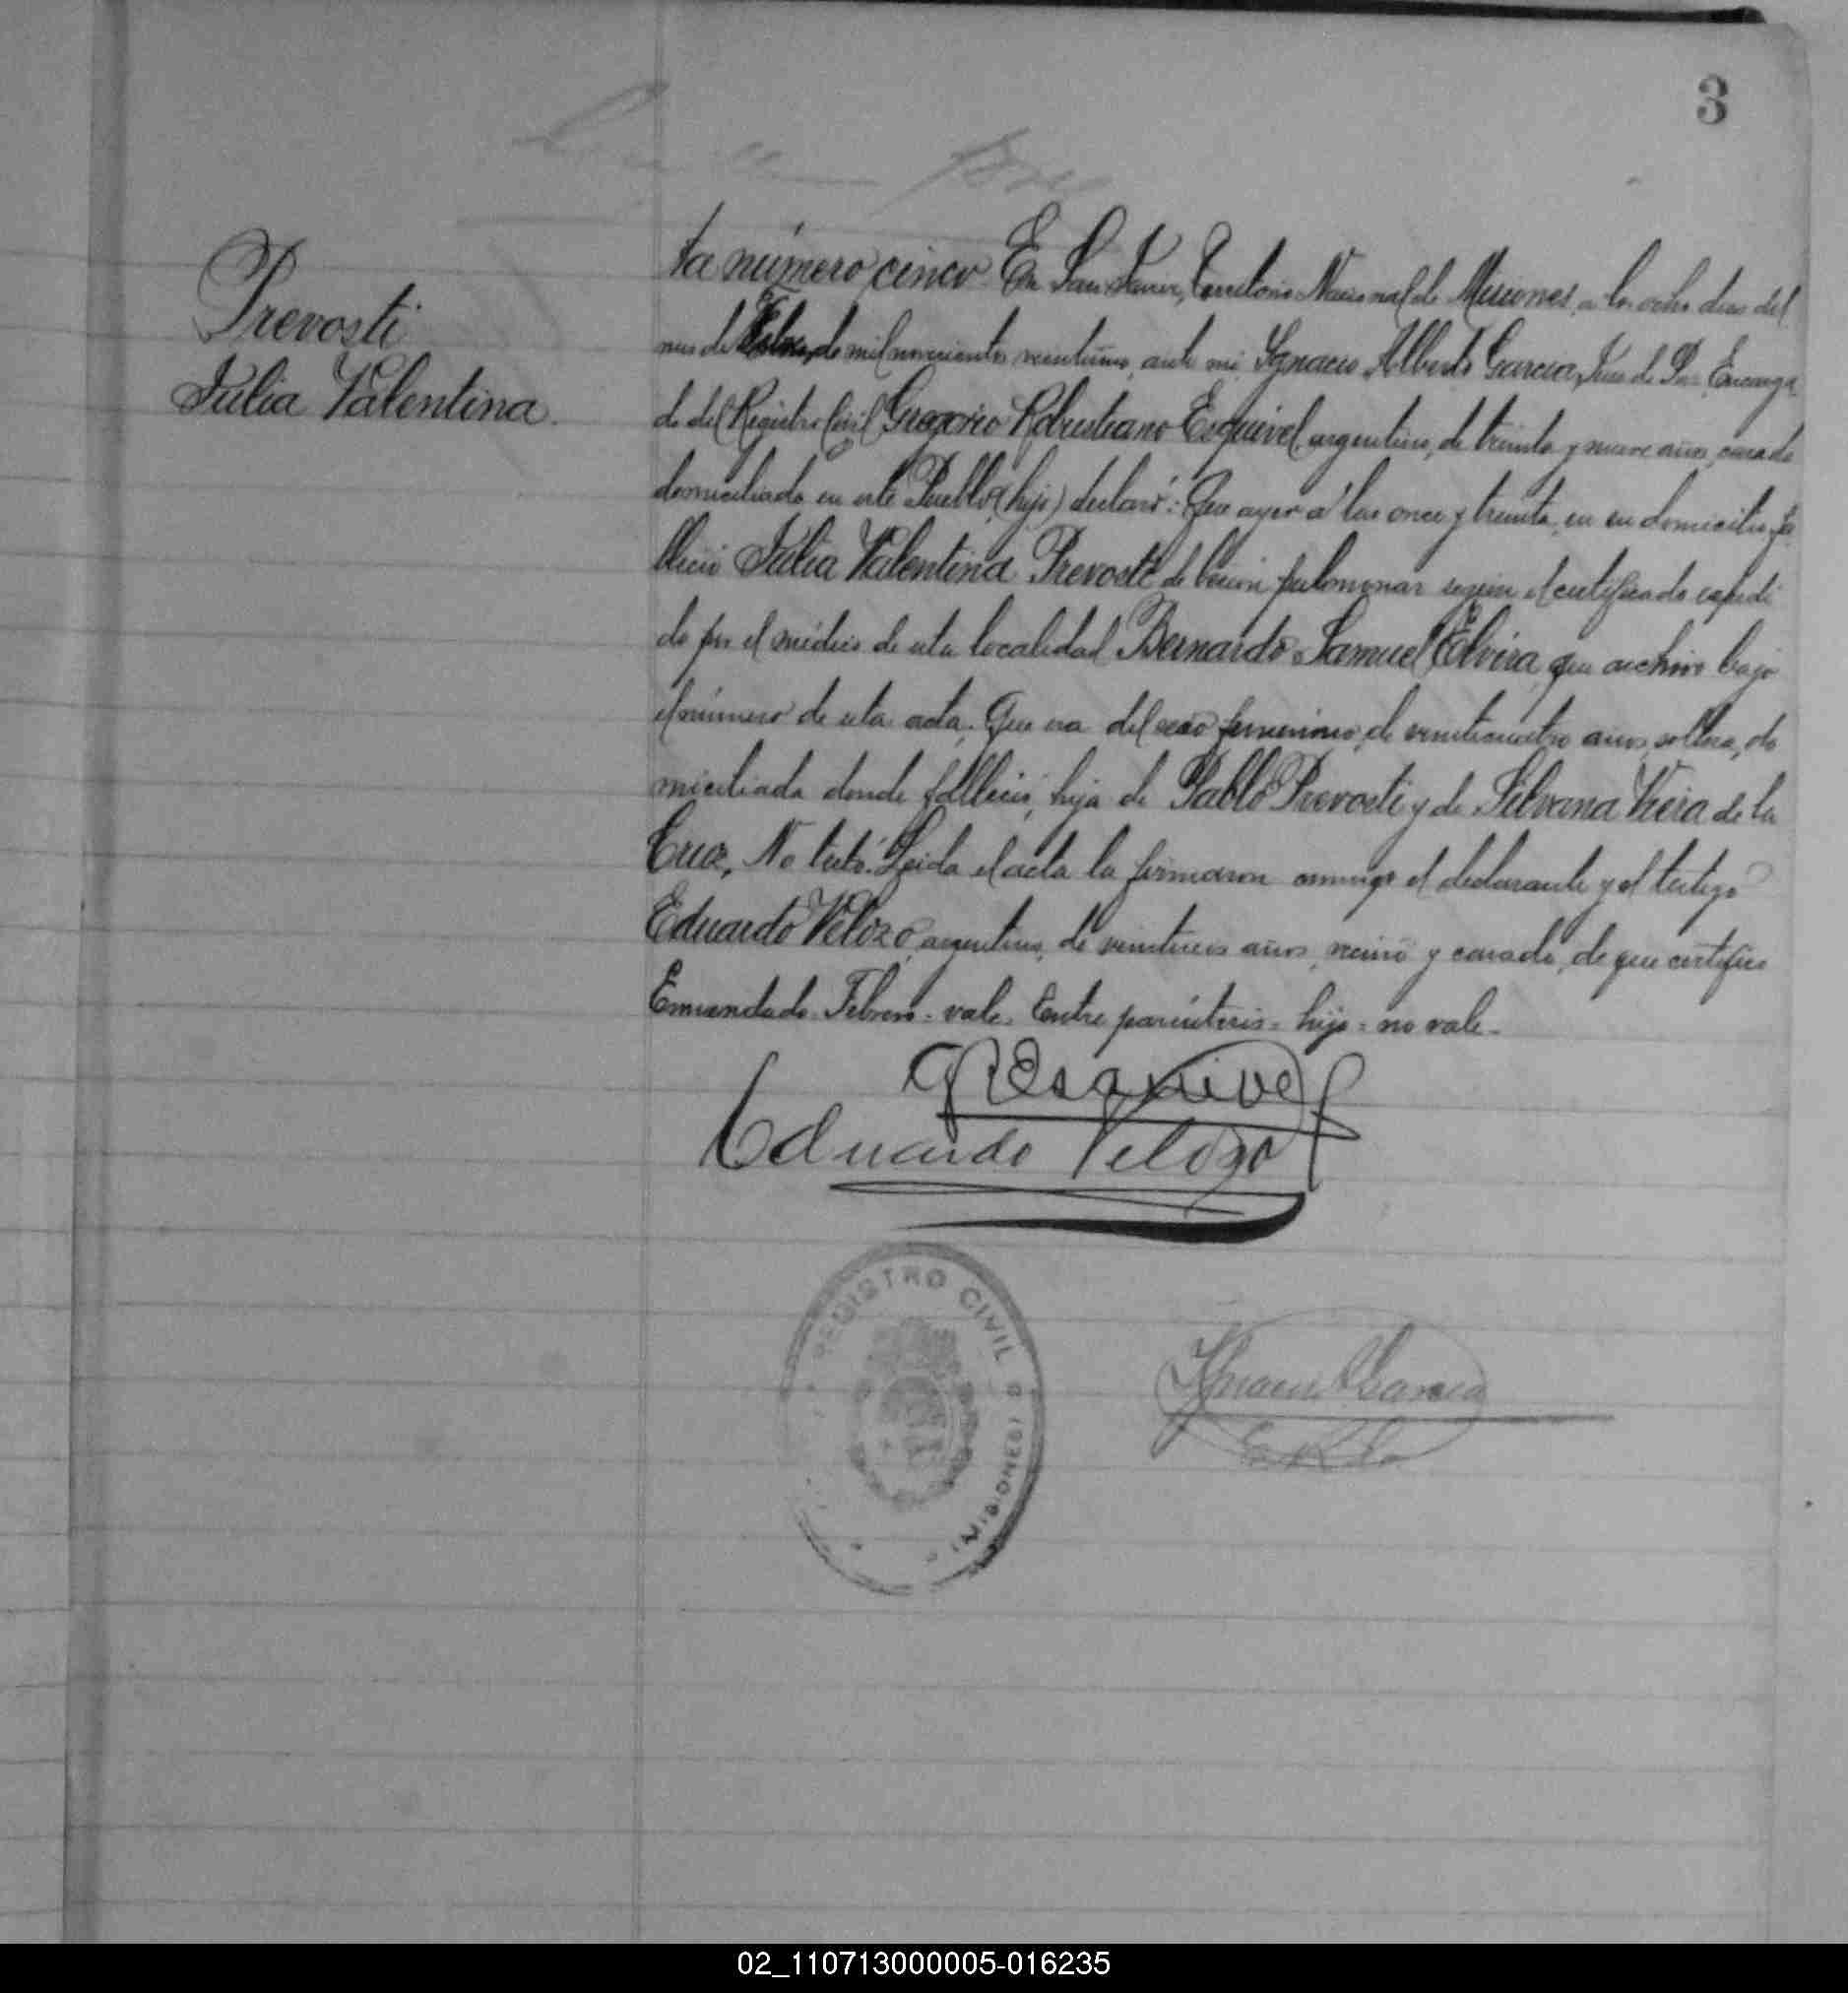 3
Prevosti
Julia Valentina.
ta número cinco En San Javier, Territorio Nacional de Misiones, a los ocho dias del
mes de Febrero, de mil novecientos veintiuno, ante mi Ignacio Alberto Garcia, Juez de Paz Encarga
do del Registro Civil Gregorio Robustiano Esquivel, argentino, de treinta y nueve años, casado
domiciliado en este Pueblo, (hijo) declaró: Que ayer a las once y treinta, en su domicilio fa
lleció Julia Valentina Prevosti de pulmonar según el certificado expedi
do por el médico de esta localidad Bernardo Samuel Elvira, que archivo bajo
el número de esta acta. Que era del sexo femenino, de veinticuatro años, soltera, do
miciliada donde falleció, hija de Pablo Prevosti y de Silvana Vieira de la
Cruz, No testó. Leida el acta la firmaron conmigo el declarante y el testigo
Eduardo Velozo, argentino, de años, vecino y casado, de que certifico
Enmendado Febrero = vale. Entre paréntesis = hijo = no vale -
GREsquivel
Eduardo Velozo
REGISTRO CIVIL
(MISIONES)
Ignacio A Garcia
02_110713000005-016235